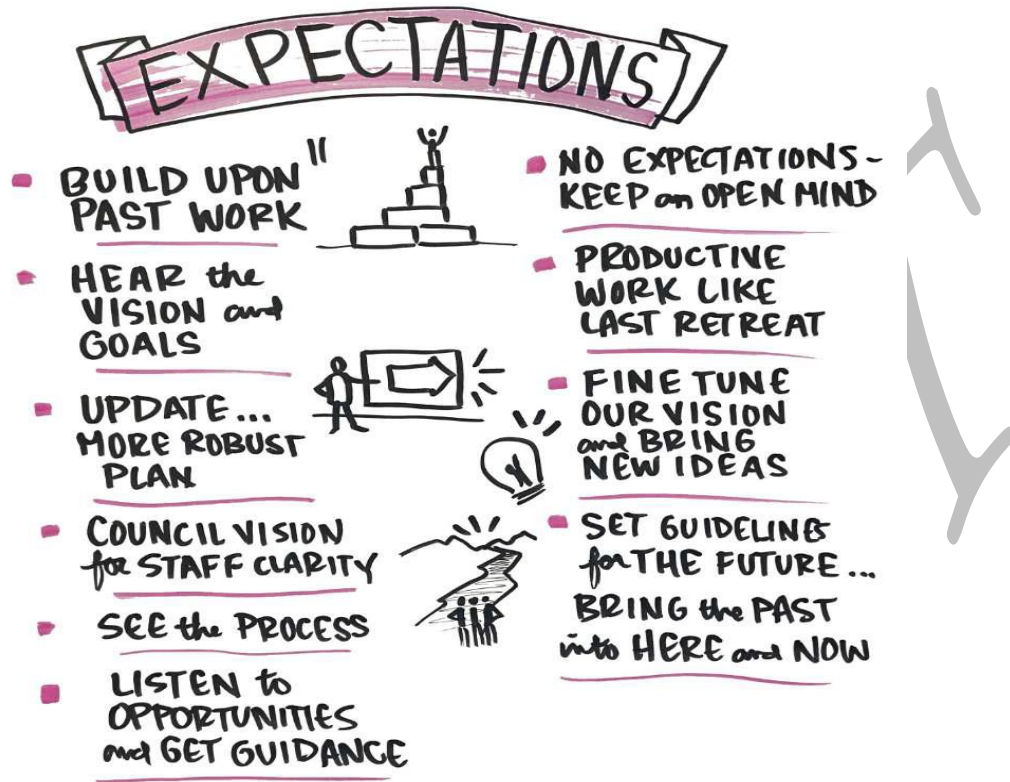 EXPECTATIONS
BUILD UPON
PAST WORK
HEAR the
VISION and
GOALS
UPDATE...
MORE ROBUST
PLAN
COUNCIL VISION
for STAFF CLARITY
SEE the PROCESS
LISTEN to
OPPORTUNITIES
and GET GUIDANCE
NO EXPECTATIONS-
KEEP an OPEN MIND
PRODUCTIVE
WORK LIKE
LAST RETREAT
FINE TUNE
OUR VISION
and BRING
NEW IDEAS
SET GUIDELINES
for THE FUTURE...
BRING the PAST
into HERE and NOW